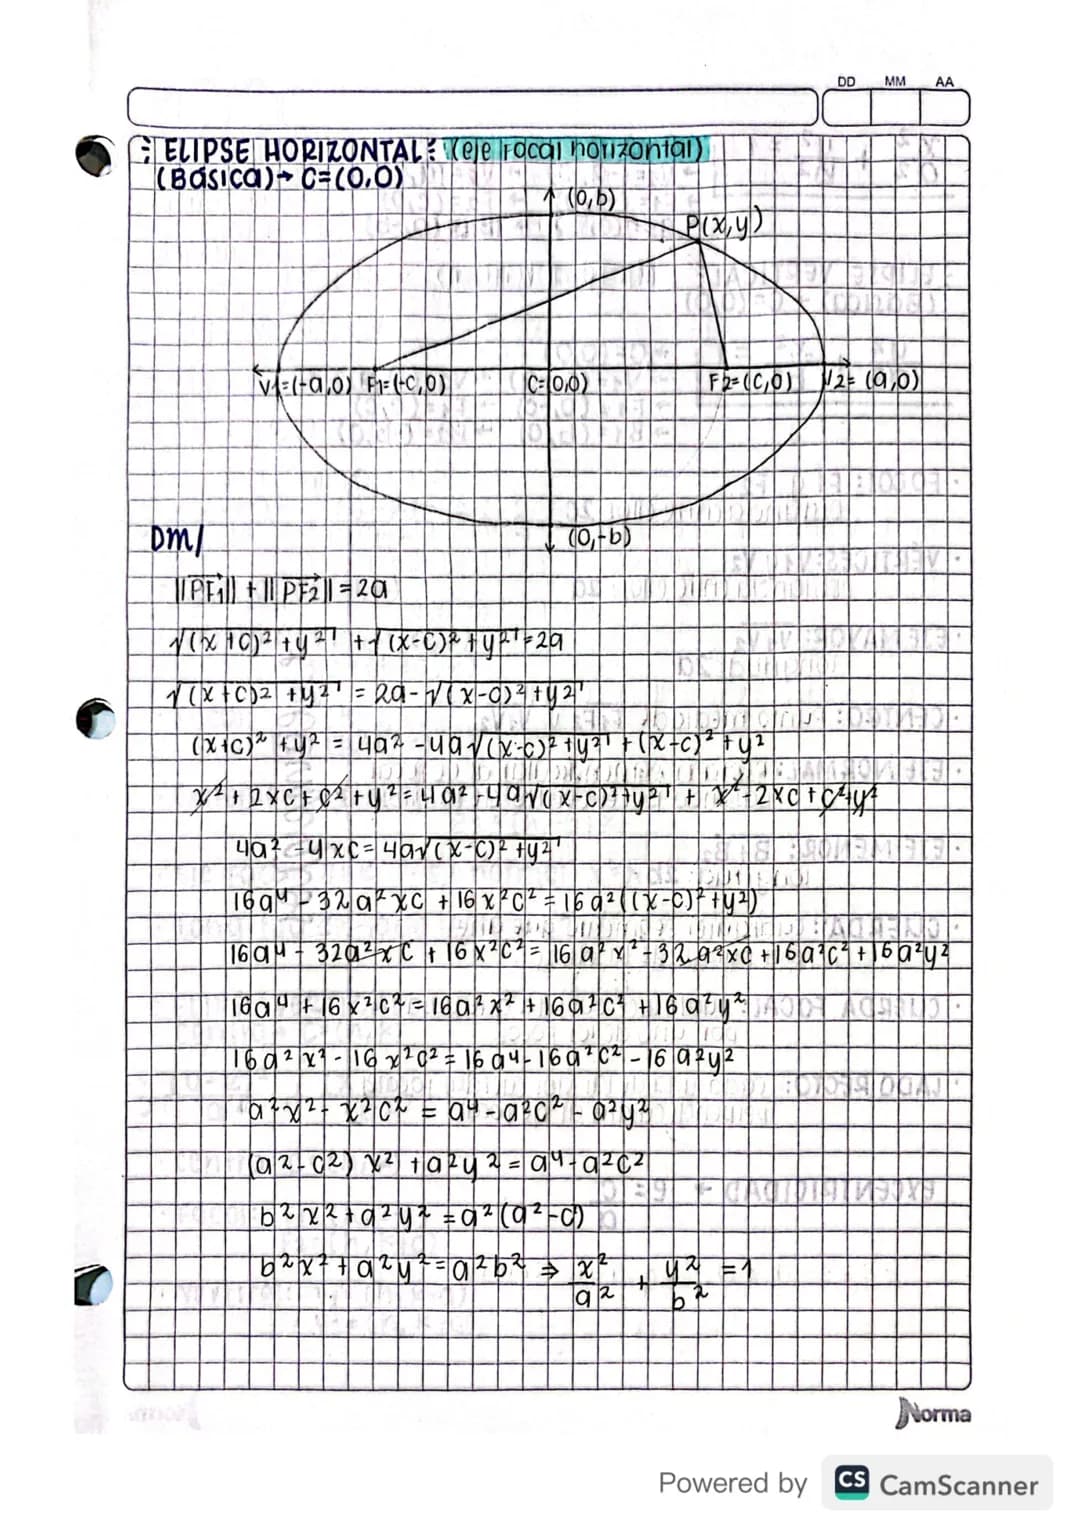 DD MM AA
ELIPSE HORIZONTAL: (eje Focal horizontal)
(Básica)→ C=(0,0)
(0,b)
P(x,y)
V1=(-a,0) F1=(-C,0) C=(0,0) F2=(C,0) V2=(a,0)
(0,-b)
Dm/
||PF1|| + ||PF2|| = 2a
√((x+c)²+y²) + √((x-c)²+y²) = 2a
√((x+c)²+y²) = 2a - √((x-c)²+y²)
(x+c)² + y² = 4a² - 4a√((x-c)²+y²) + (x-c)² + y²
x² + 2xc + c² + y² = 4a² - 4a√((x-c)²+y²) + x² - 2xc + c² + y²
4a² - 4xc = 4a√((x-c)²+y²)
16a⁴ - 32a²xc + 16x²c² = 16a²((x-c)²+y²)
16a⁴ - 32a²xc + 16x²c² = 16a²x² - 32a²xc + 16a²c² + 16a²y²
16a⁴ + 16x²c² = 16a²x² + 16a²c² + 16a²y²
16a²x² - 16x²c² = 16a⁴ - 16a²c² - 16a²y²
a²x² - x²c² = a⁴ - a²c² - a²y²
(a²-c²)x² + a²y² = a⁴ - a²c²
b²x² + a²y² = a²(a²-c)
b²x² + a²y² = a²b² ⇒ x²/a² + y²/b² = 1
Norma
Powered by CS CamScanner